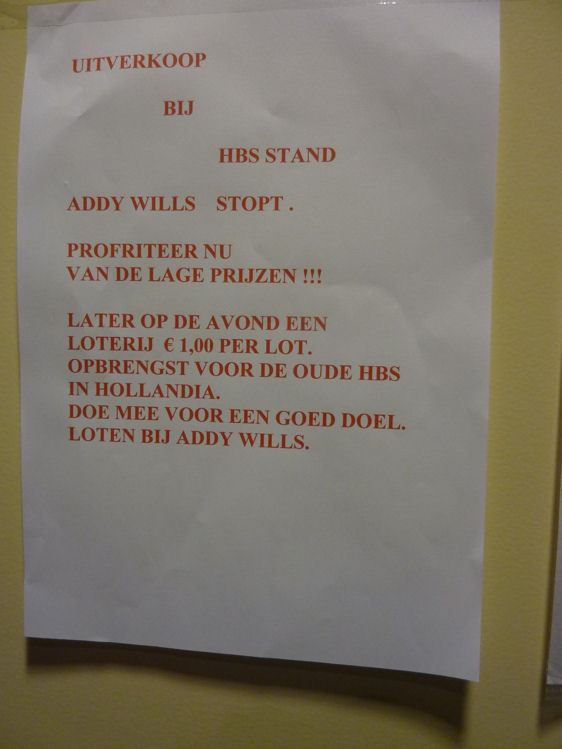 UITVERKOOP
BIJ
HBS STAND
ADDY WILLS STOPT .
PROFRITEER NU
VAN DE LAGE PRIJZEN !!!
LATER OP DE AVOND EEN
LOTERIJ € 1,00 PER LOT.
OPBRENGST VOOR DE OUDE HBS
IN HOLLANDIA.
DOE MEE VOOR EEN GOED DOEL.
LOTEN BIJ ADDY WILLS.